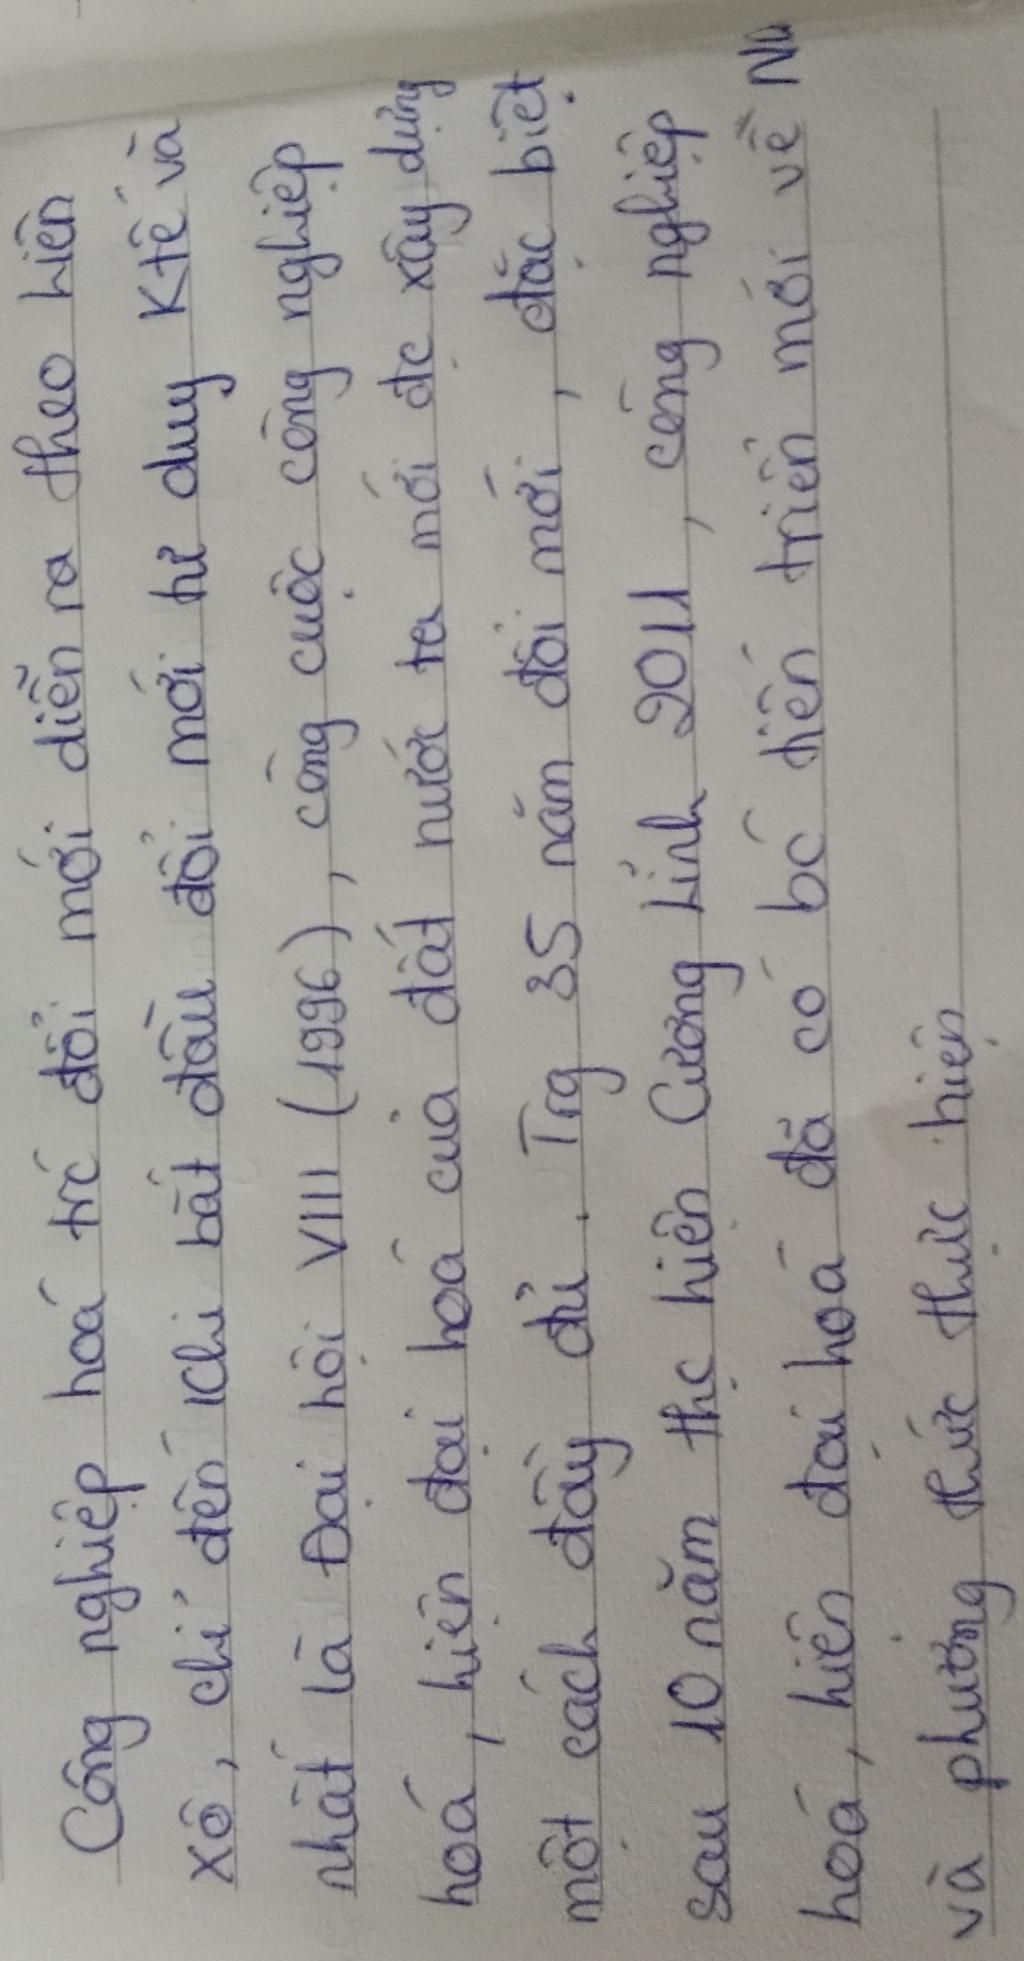 Công nghiệp hoá trc đổi mới diễn ra theo Liên
Xô, chỉ đến khi bắt đầu đổi mới tư duy Ktế và
nhất là Đại hội VIII (1996), công cuộc công nghiệp
hoá, hiện đại hoá của đất nước ta mới đc xây dựng
một cách đầy đủ. Trg 35 năm đổi mới, đặc biệt
sau 10 năm thực hiện Cương Lĩnh 2011, công nghiệp
hoá, hiện đại hoá đã có bc tiến triển mới về
và phương thức thực hiện